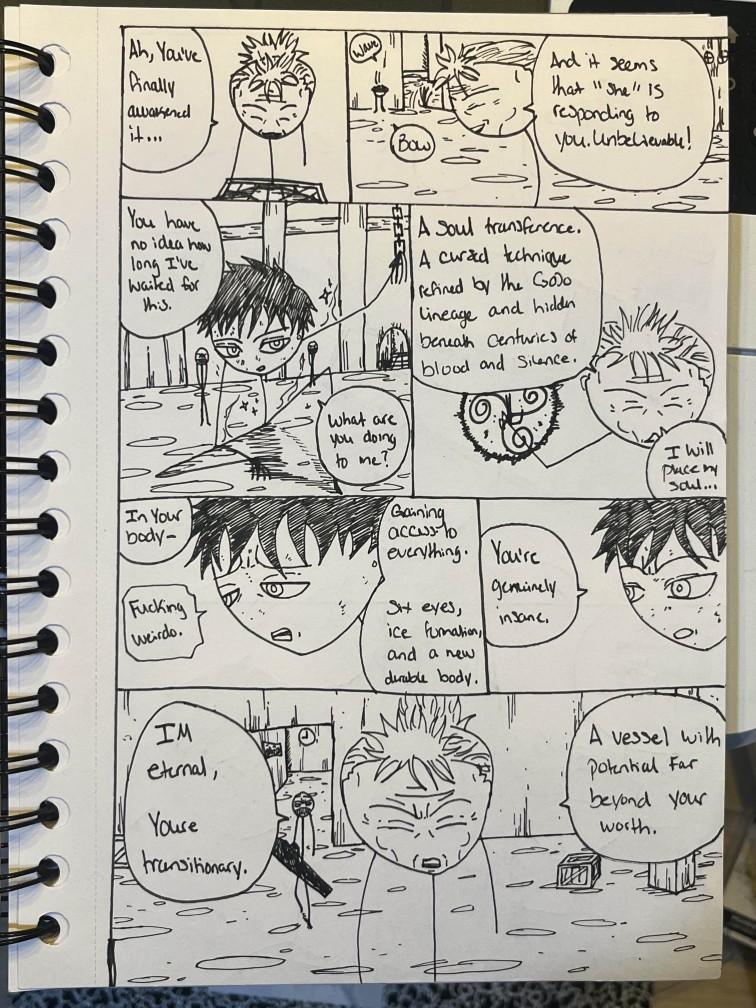 Ah, You've
finally
awakened
it...
Wave
Bow
And it seems
that "she" is
responding to
you. Unbelievable!
You have
no idea how
long I've
waited for
this.
What are
you doing
to me?
A soul transference.
A cursed technique
refined by the GoJo
lineage and hidden
beneath centuries of
blood and silence.
I will
place my
soul...
In Your
body-
Fucking
weirdo.
Gaining
access to
everything.
Six eyes,
ice formation,
and a new
durable body.
You're
genuinely
insane.
IM
eternal,
Youre
transitionary.
A vessel with
potential far
beyond your
worth.